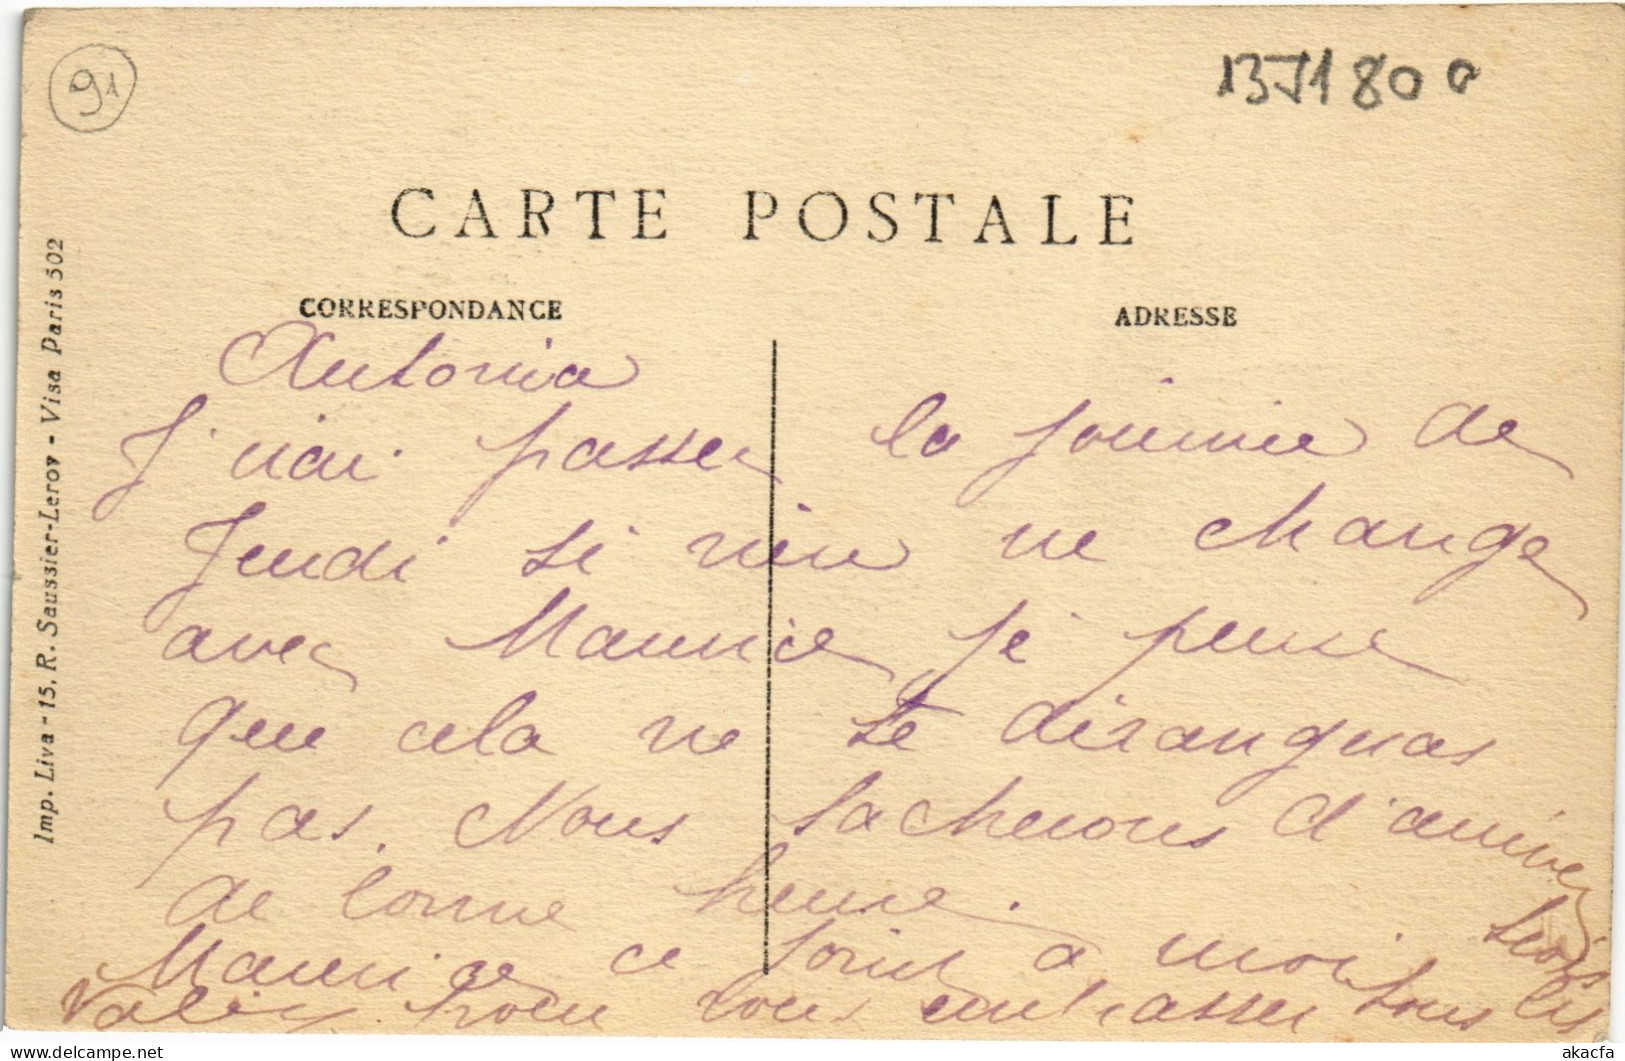 91
1371800
CARTE POSTALE
CORRESPONDANCE
ADRESSE
Imp. Liva - 15, R. Saussier-Leroy - Visa Paris 502
Antonia
J'irai passer la journie de
Jeudi si rien ne change
avec Maurice je pense
que cela ne te diranguas
pas. Nous tacherons d'arriver
de bonne heure.
Maurice ce joint a moi
pour vous embrasser tous les
trois